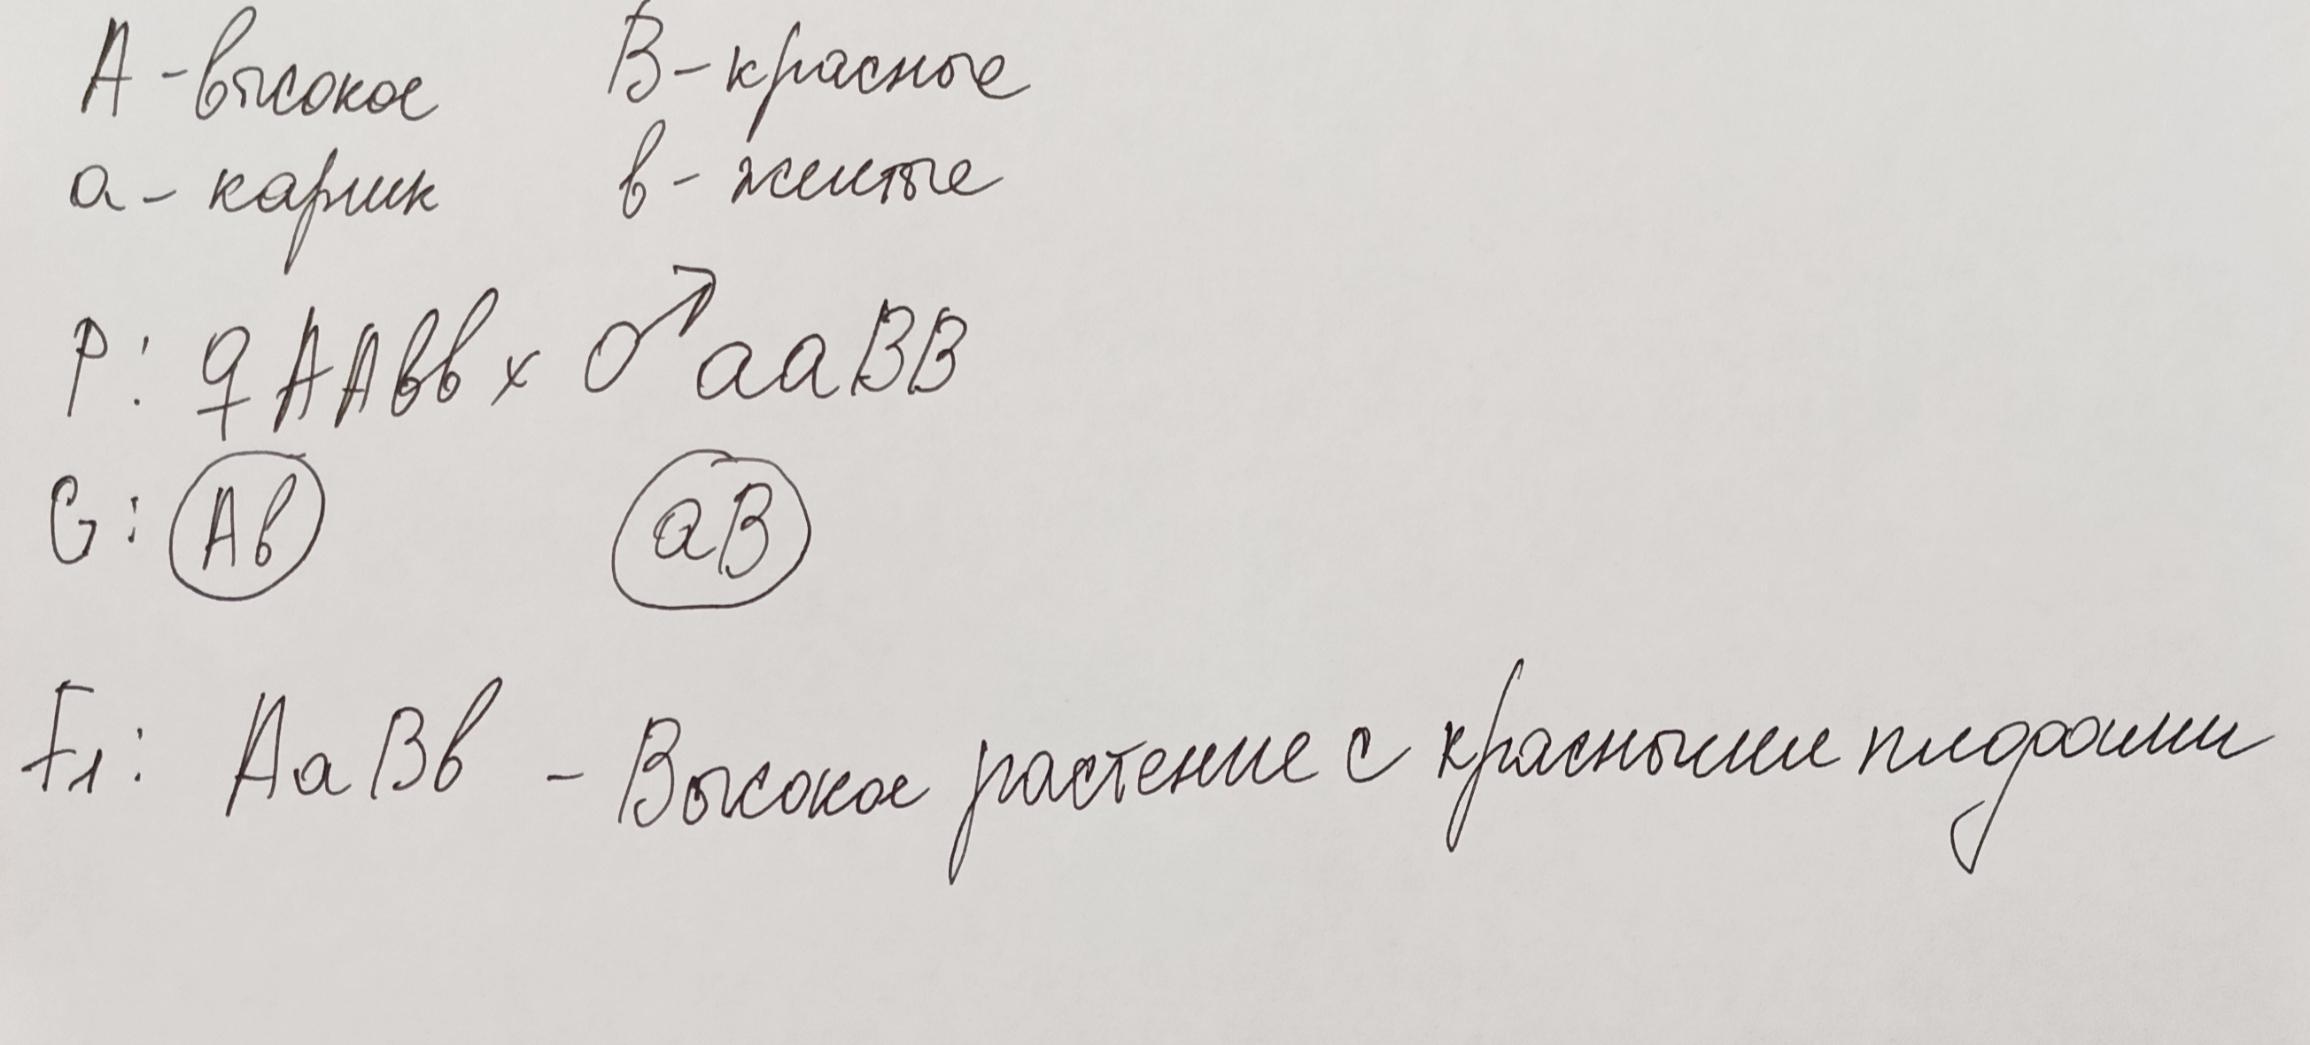 А - высокое В - красные
а - карлик в - желтые
Р: ♀ ААвв х ♂ ааВВ
G: Ав аВ
F1: АаВв - Высокое растение с красными плодами